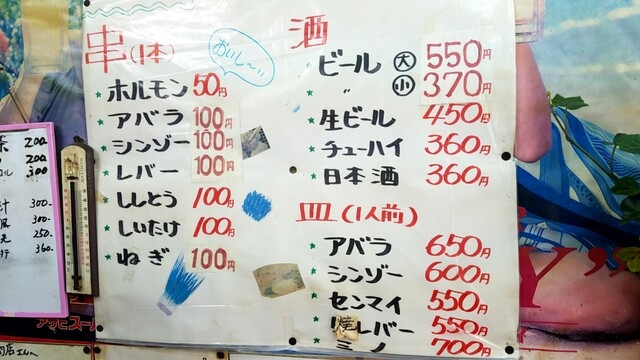 串(1本)
おいし〜!!
ホルモン 50円
アバラ 100円
シンゾー 100円
レバー 100円
ししとう 100円
しいたけ 100円
ねぎ 100円
酒
ビール 大 550円
〃 小 370円
生ビール 450円
チューハイ 360円
日本酒 360円
皿(1人前)
アバラ 650円
シンゾー 600円
センマイ 550円
焼レバー 550円
ミノ 700円
200
200
300
300-
300-
250-
360-
アサヒスー